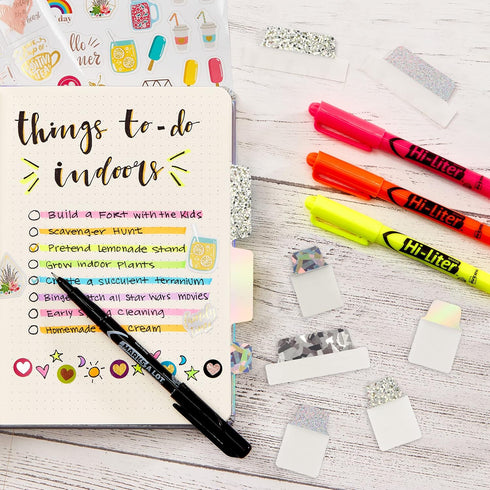 things to-do
indoors
Build a Fort with the Kids
Scavenger Hunt
Pretend Lemonade Stand
Grow indoor Plants
Create a succulent terranium
Binge watch all Star Wars movies
Early Spring Cleaning
Homemade cream
MARKS A LOT
Hi-Liter
Hi-Liter
Hi-Liter